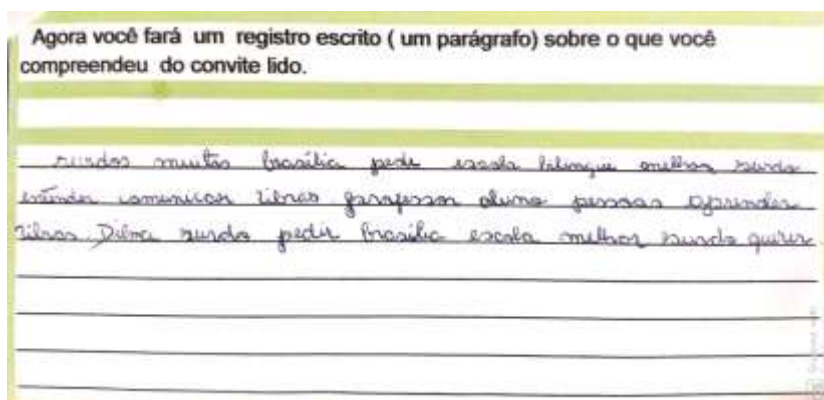 Agora você fará um registro escrito ( um parágrafo) sobre o que você
compreendeu do convite lido.
surdos muitos brasília pede escola bilingue melhor surdo
entender comunicar libras professor aluno pessoas aprender
libras Dilma surdo pedir brasília escola melhor surdo querer